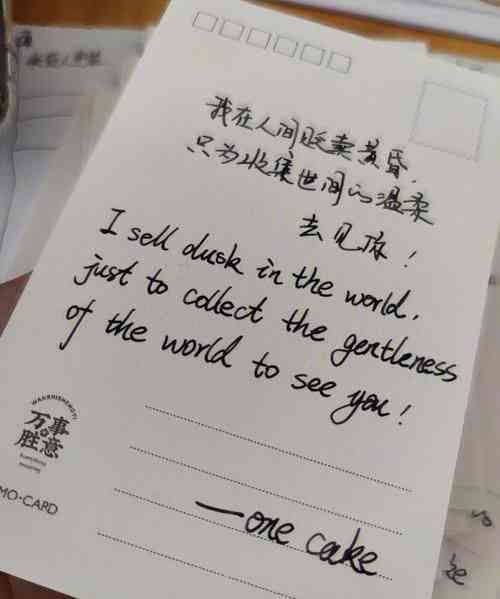 我在人间贩卖黄昏,
只为收集世间的温柔
去见你!
I sell dusk in the world,
just to collect the gentleness
of the world to see you!
WANSHISHENGYI
万事
胜意
MO-CARD
—one cake